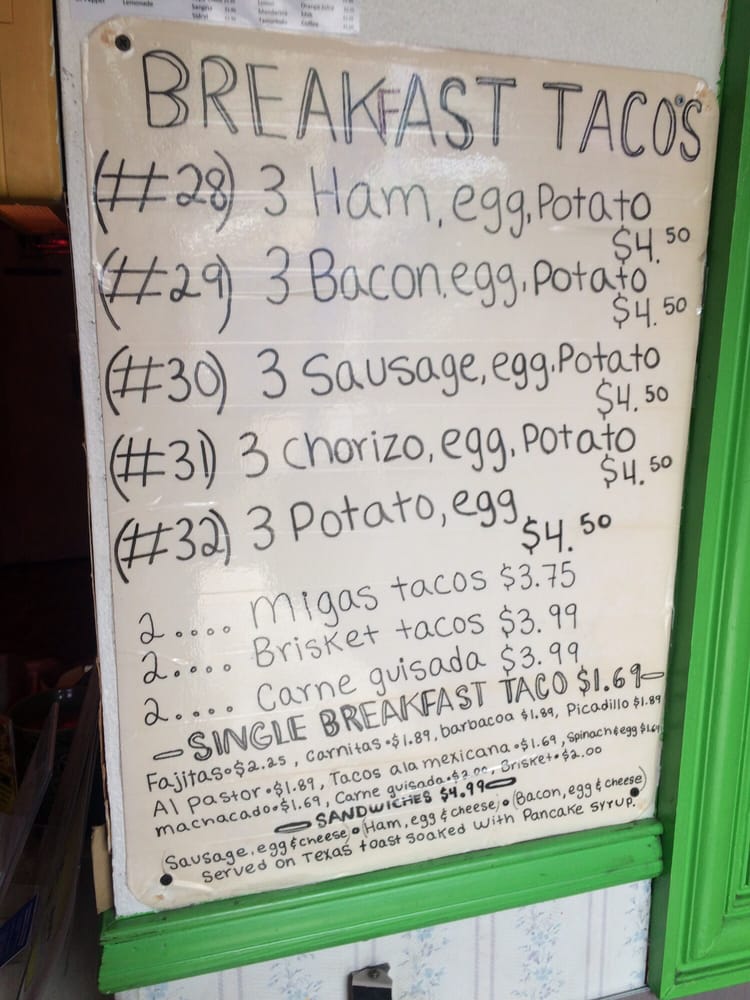 Lemonade
Sangria
Sidral
Lemon
Mandarin
Tamarindo
Orange Juice
Milk
Coffee
BREAKFAST TACO'S
(#28) 3 Ham, egg, Potato
$4.50
(#29) 3 Bacon, egg, Potato
$4.50
(#30) 3 Sausage, egg, Potato
$4.50
(#31) 3 chorizo, egg, Potato
$4.50
(#32) 3 Potato, egg
$4.50
2.... Migas tacos $3.75
2.... Brisket tacos $3.99
2.... Carne guisada $3.99
- SINGLE BREAKFAST TACO $1.69 -
Fajitas•$2.25, Carnitas•$1.89, barbacoa $1.89, Picadillo $1.89
Al Pastor•$1.89, Tacos ala mexicana•$1.69, Spinach & egg $1.69
machacado•$1.69, Carne guisada•$2.00, Brisket•$2.00
- SANDWICHES $4.99 -
(Sausage, egg & cheese) • (Ham, egg & cheese) • (Bacon, egg & cheese)
Served on Texas toast soaked with Pancake syrup.